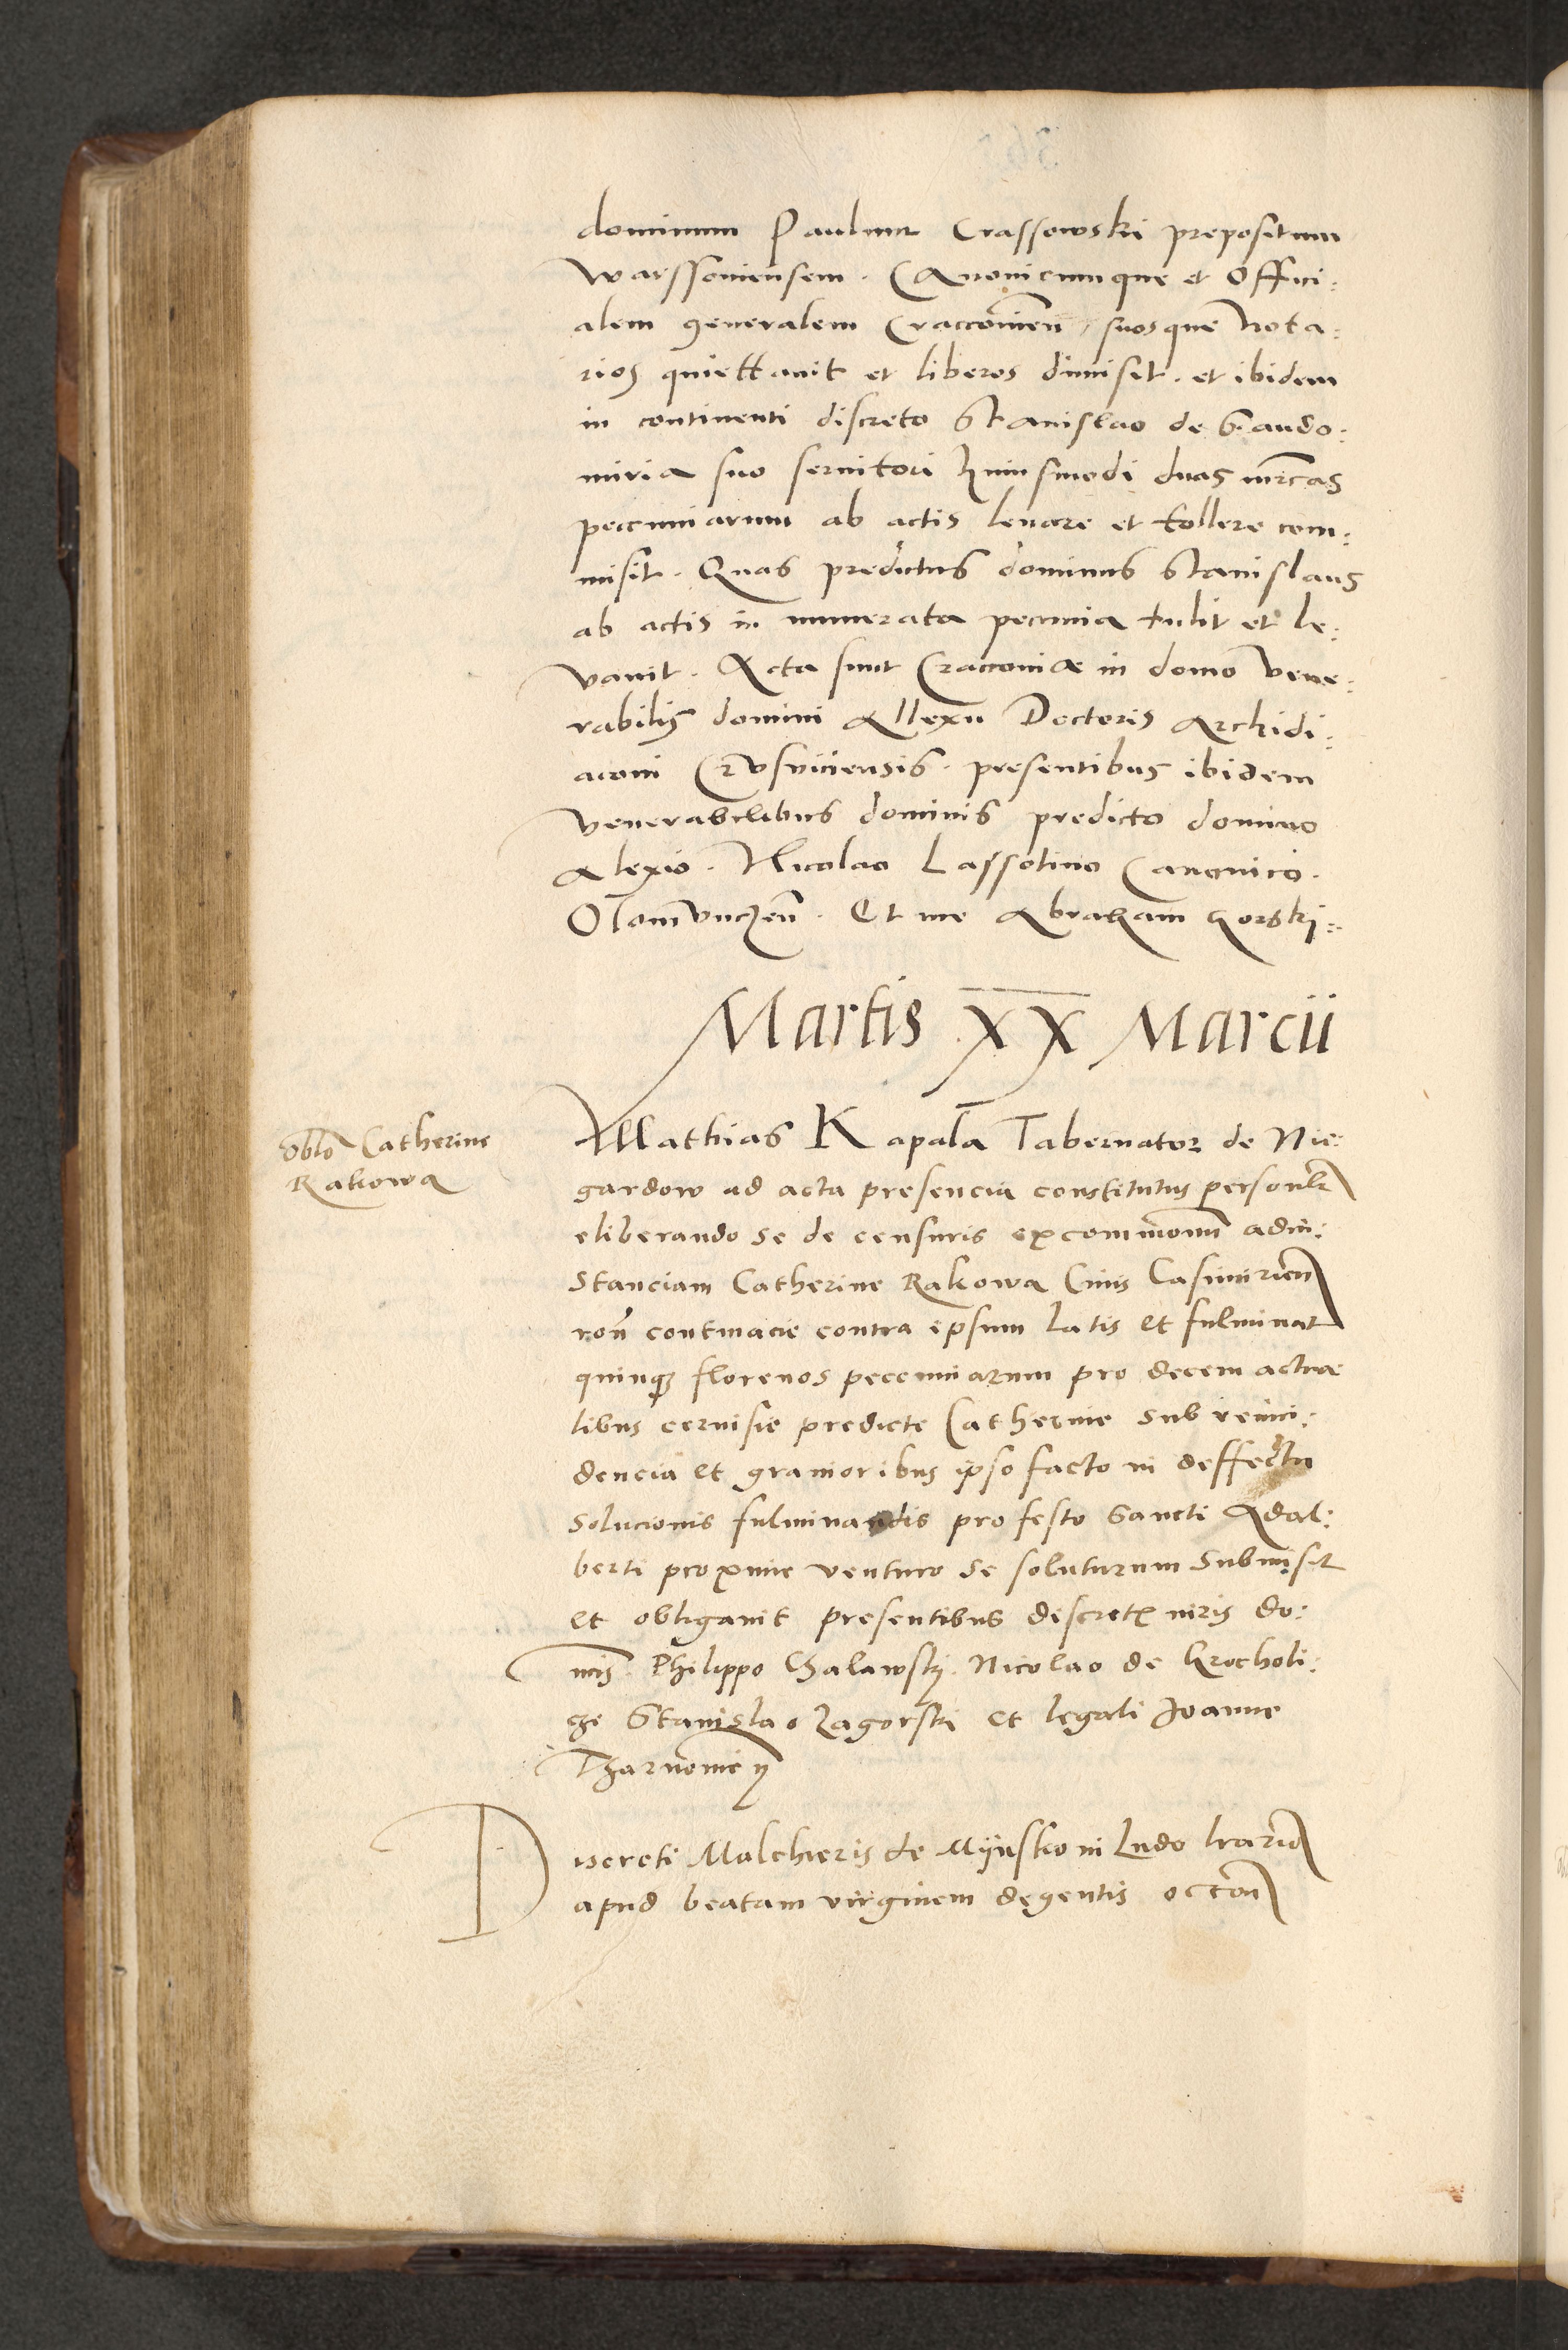 dominum Paulum Crassowski prepositum
Warssoviensem. Canonicumque et Offici:
alem generalem Craccovień, suosque Nota:
rios quiettavit et liberos dimisit. et ibidem
in continenti discreto Stanislao de Sando:
miria suo servitori huiusmodi duas mrcas
pecuniarum ab actis levare et tollere com:
misit. Quas predictus dominus Stanislaus
ab actis in numerata pecunia tulit et le:
vavit. Acta sunt Craccoviae in domo vene:
rabilis domini Allexii Doctoris Archidi:
aconi Crusviciensis. presentibus ibidem
venerabilibus dominis predicto domino
Alexio. Nicolao Lassotino Canonico.
Olomunczeń. Et me Abraham Gorski:
Martis XX Marcii
Oblo Catherine
Rakowa
Mathias Kapala Tabernator de Nie:
gardow ad acta presencia constitutus personlr
eliberando se de censuris excommōnum adin:
stanciam Catherine Rakowa Civis Casimirien
roñ contumacie contra ipsum latis et fulminat
quinqz florenos peccuniarum pro decem actua
libus cervisie predicte Catherine sub reinci:
dencia et gravioribus ipso facto in deffectu
solucionis fulminandis pro festo Sancti Adal:
berti proxime venturo se soluturum submisit
et obligavit presentibus discretis viris do:
mis. Philippo Chalawskj. Nicolao de Krocholi:
cze Stanislao Zagorski et legali Joanne
Tharnowiey
Discreti Malcheris de Mijnsko in Ludo lrario
apud beatam virginem degentis octon